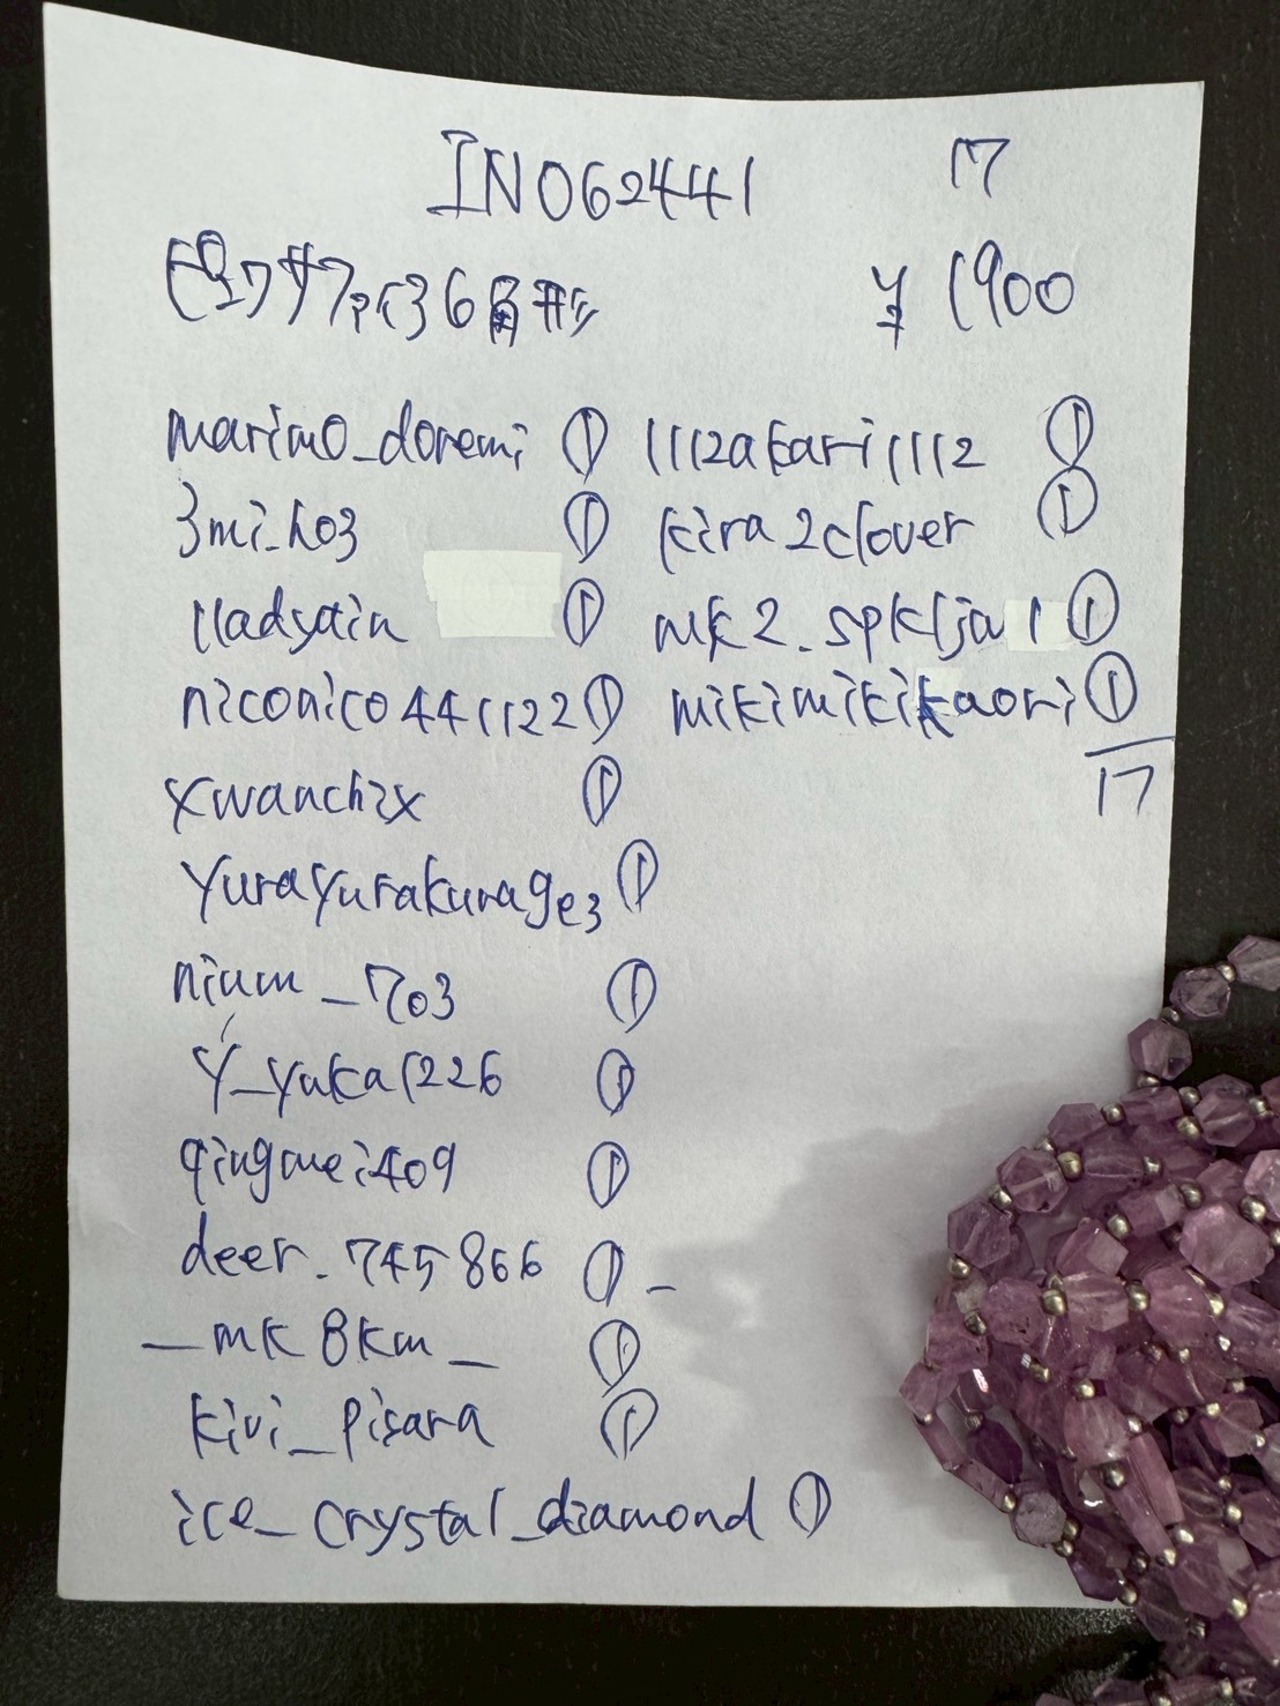 INO62441 17
¥1900
marimo_doremi ① 1112akari1112 ①
3mi_ho3 ① kira2clover ①
11adsain ① mk2_spklja1 ①
niconico441122 ① mikimikikaori ①
17
xwanchix ①
yurayurakurage3 ①
nium_703 ①
y_yuka1226 ①
qingmei409 ①
deer_745866 ① -
_mk8km_ ①
kivi_pisara ①
ice_crystal_diamond ①